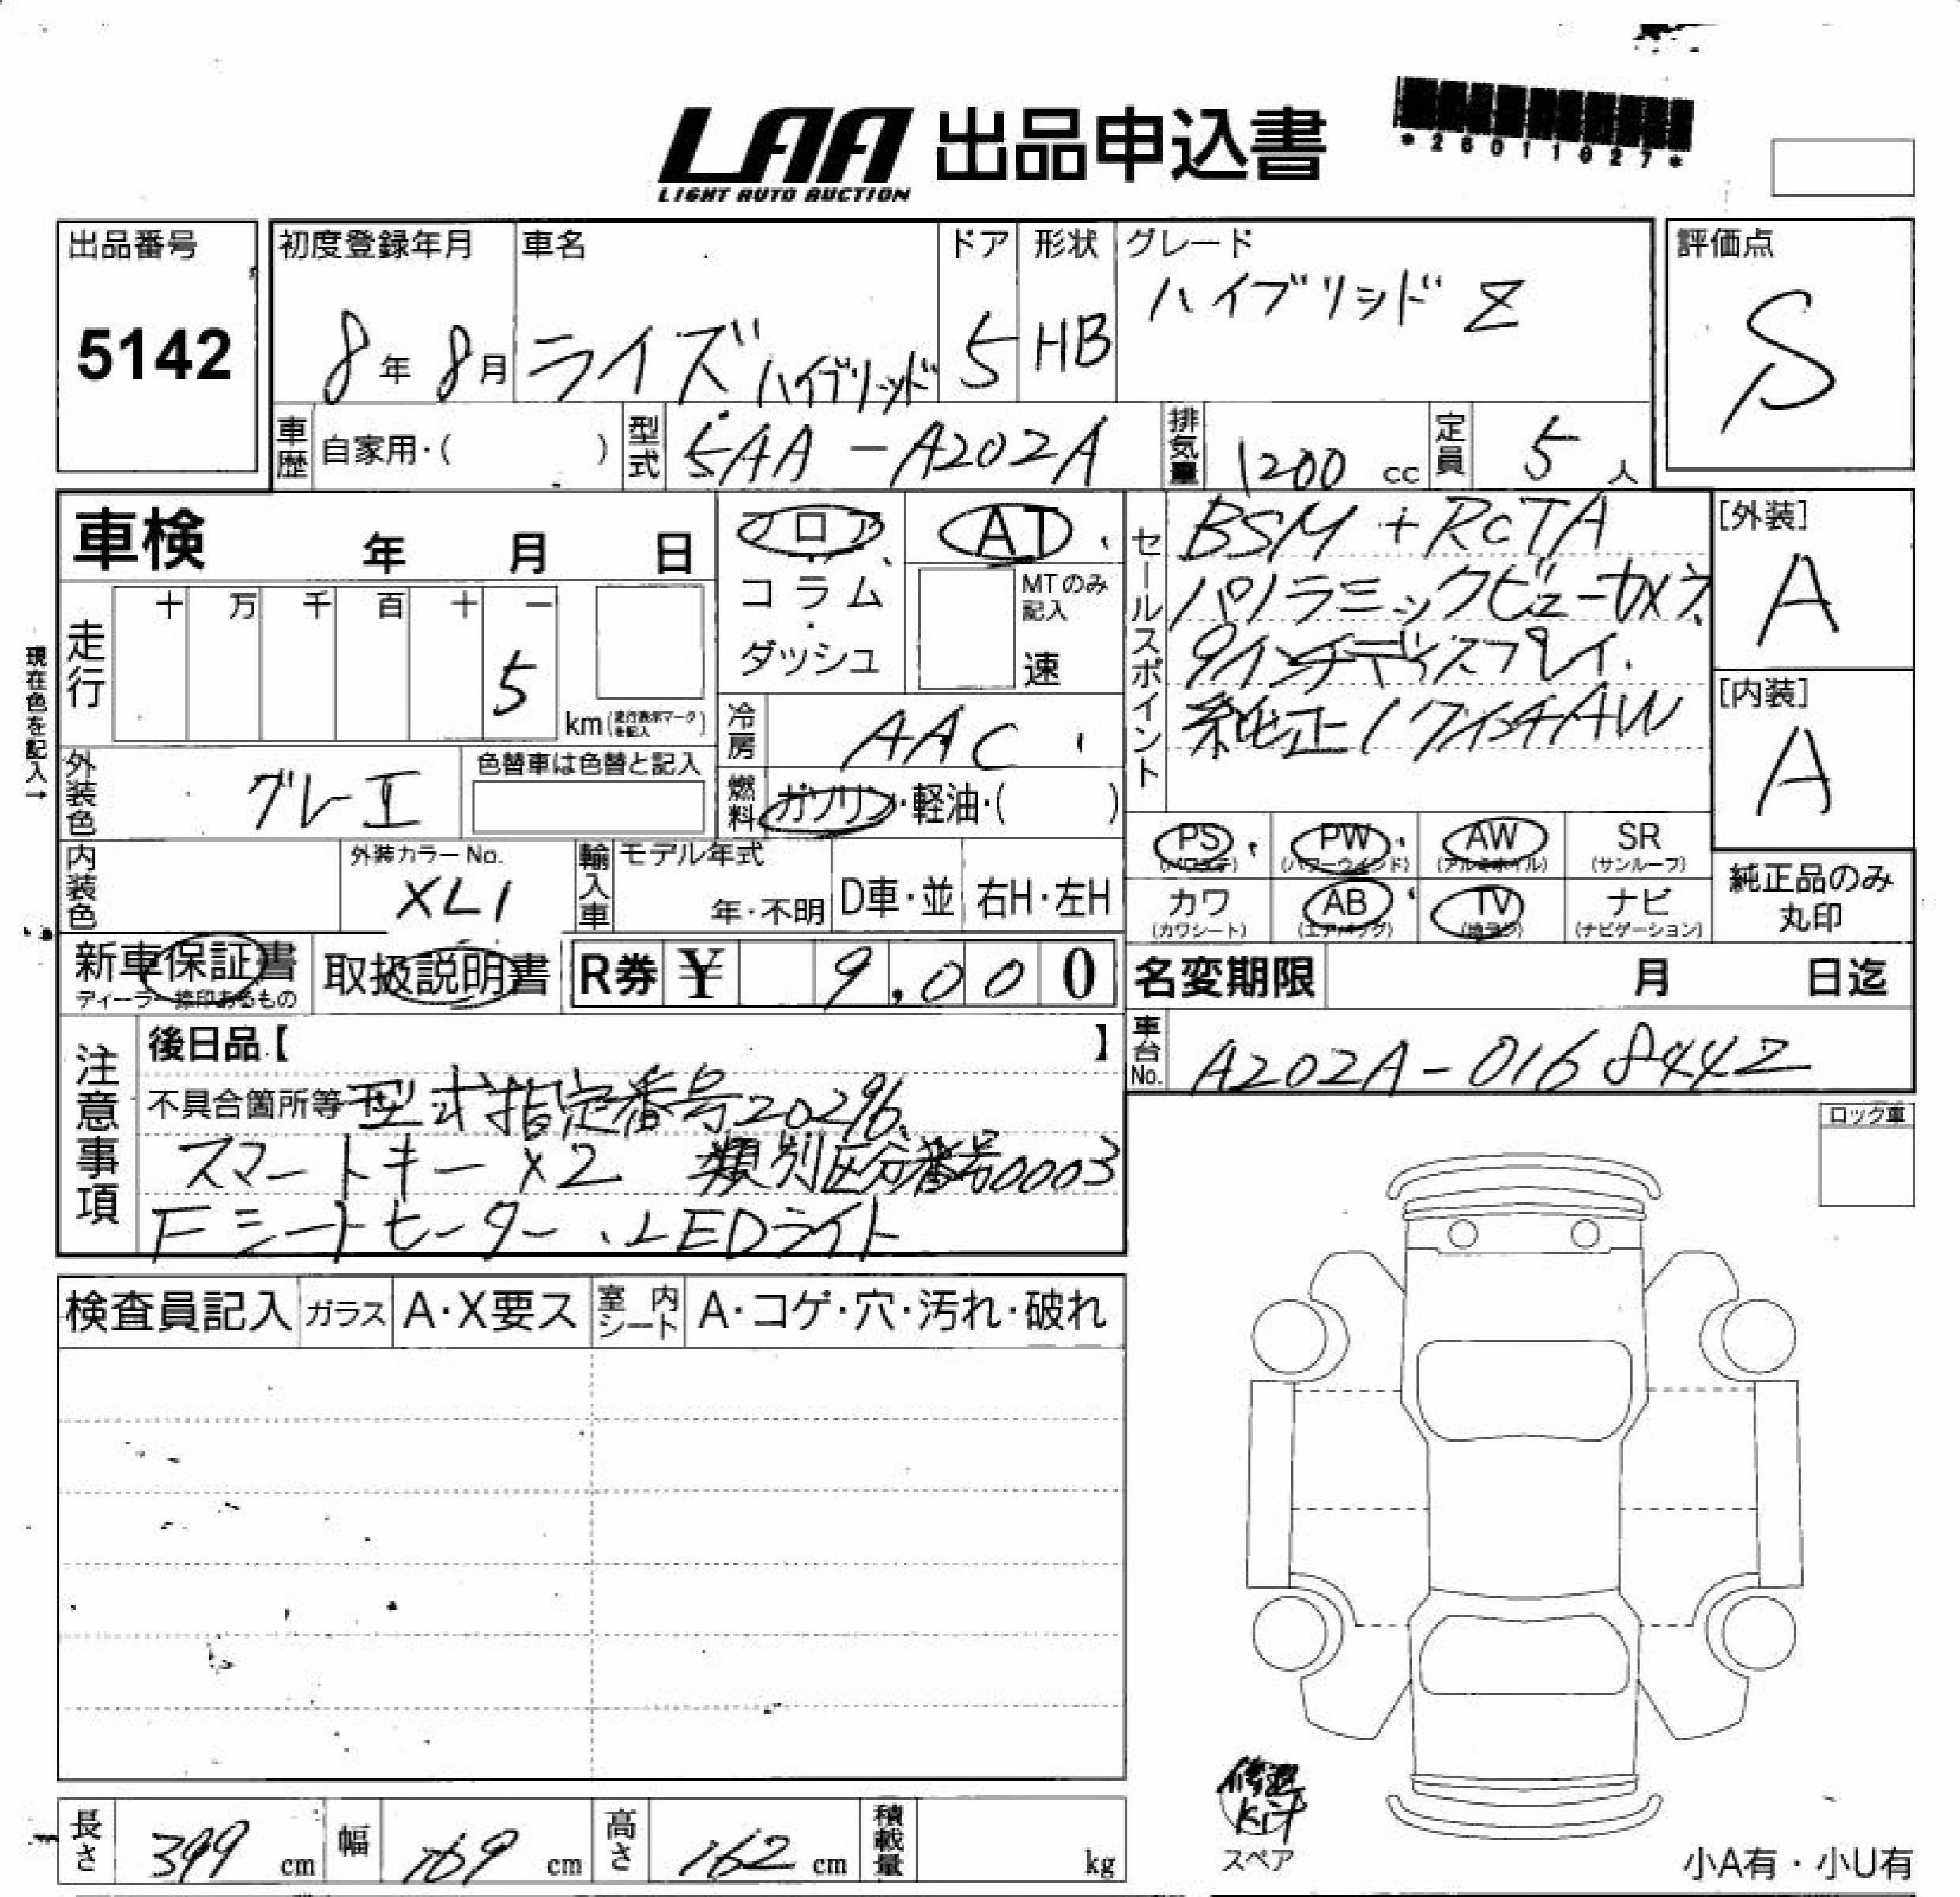 LAA 出品申込書
LIGHT AUTO AUCTION
*26011627*
出品番号
5142
初度登録年月
8年 8月
車名
ライズ ハイブリッド
ドア
5
形状
HB
グレード
ハイブリッド Z
評価点
S
車歴 自家用・( )
型式 5AA-A202A
排気量 1200 cc
定員 5人
車検 年 月 日
フロア
・
コラム
・
ダッシュ
AT
MTのみ記入
速
セールスポイント
BSM + RCTA
パノラミックビューカメラ
9インチディスプレイ.
純正17インチAW
[外装]
A
[内装]
A
現在色を記入→
走行
十 万 千 百 十 一
5
km (走行表示マークを記入)
冷房 AAC
外装色 グレーI
色替車は色替と記入
燃料 ガソリン・軽油・( )
PS (パワステ) PW (パワーウィンド) AW (アルミホイル) SR (サンルーフ)
カワ (カワシート) AB (エアバッグ) TV (地デジ) ナビ (ナビゲーション)
純正品のみ
丸印
内装色
外装カラーNo.
XL1
輸入車
モデル年式
年・不明
D車・並
右H・左H
新車保証書
ディーラー捺印あるもの
取扱説明書
R券 ¥ 9,000
名変期限 月 日迄
車台No. A202A-0168442
注意事項
後日品【 】
不具合箇所等 型式指定番号20296.
スマートキー×2 類別区分番号0003
Fシートヒーター、LEDライト
ロック車
検査員記入 ガラス A・X要ス 室内シート A・コゲ・穴・汚れ・破れ
修理
Kit
スペア
長さ 399 cm 幅 169 cm 高さ 162 cm 積載量 kg
小A有・小U有